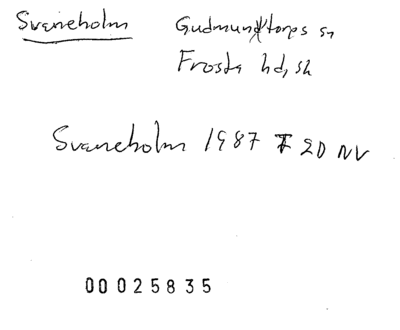 Svaneholm Gudmundtorps sn
Frosta hd, sk
Svaneholm 1987 T 2D NV
00025835